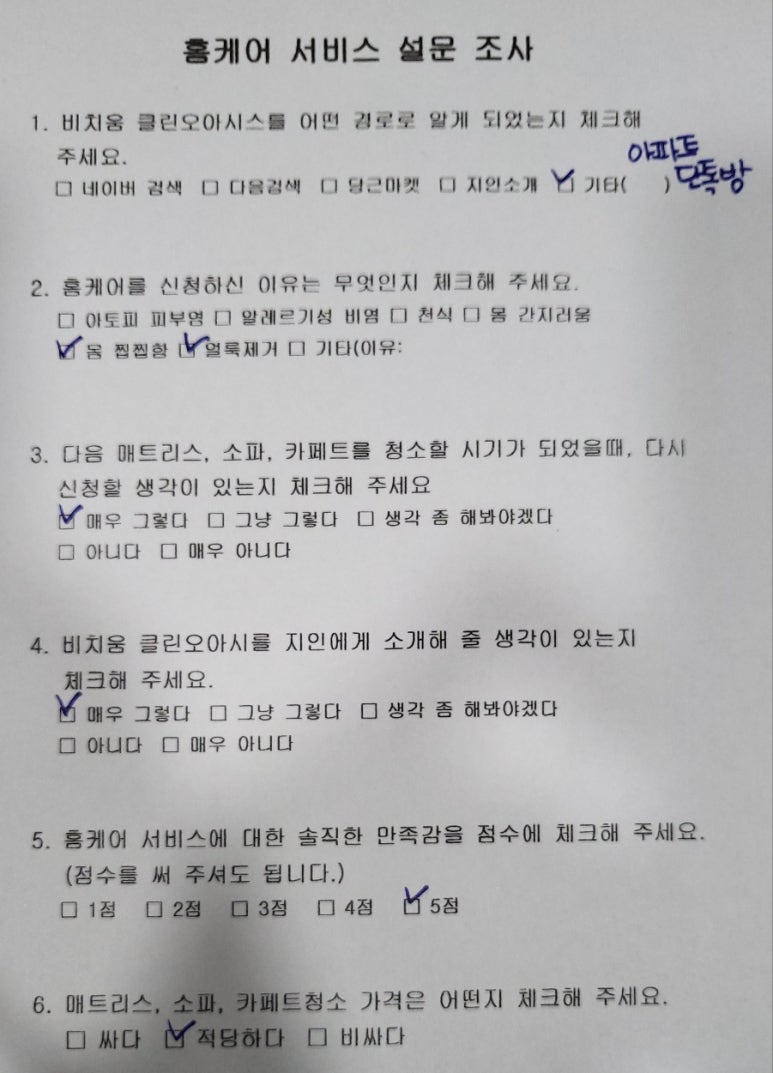 홈케어 서비스 설문 조사
1. 비치움 클린오아시스를 어떤 경로로 알게 되었는지 체크해
주세요.
아파트
☐ 네이버 검색 ☐ 다음검색 ☐ 당근마켓 ☐ 지인소개 ☑ 기타( ) 단톡방
2. 홈케어를 신청하신 이유는 무엇인지 체크해 주세요.
☐ 아토피 피부염 ☐ 알레르기성 비염 ☐ 천식 ☐ 몸 간지러움
☑ 몸 찝찝함 ☑ 얼룩제거 ☐ 기타(이유:
3. 다음 매트리스, 소파, 카페트를 청소할 시기가 되었을때, 다시
신청할 생각이 있는지 체크해 주세요
☑ 매우 그렇다 ☐ 그냥 그렇다 ☐ 생각 좀 해봐야겠다
☐ 아니다 ☐ 매우 아니다
4. 비치움 클린오아시를 지인에게 소개해 줄 생각이 있는지
체크해 주세요.
☑ 매우 그렇다 ☐ 그냥 그렇다 ☐ 생각 좀 해봐야겠다
☐ 아니다 ☐ 매우 아니다
5. 홈케어 서비스에 대한 솔직한 만족감을 점수에 체크해 주세요.
(점수를 써 주셔도 됩니다.)
☐ 1점 ☐ 2점 ☐ 3점 ☐ 4점 ☑ 5점
6. 매트리스, 소파, 카페트청소 가격은 어떤지 체크해 주세요.
☐ 싸다 ☑ 적당하다 ☐ 비싸다